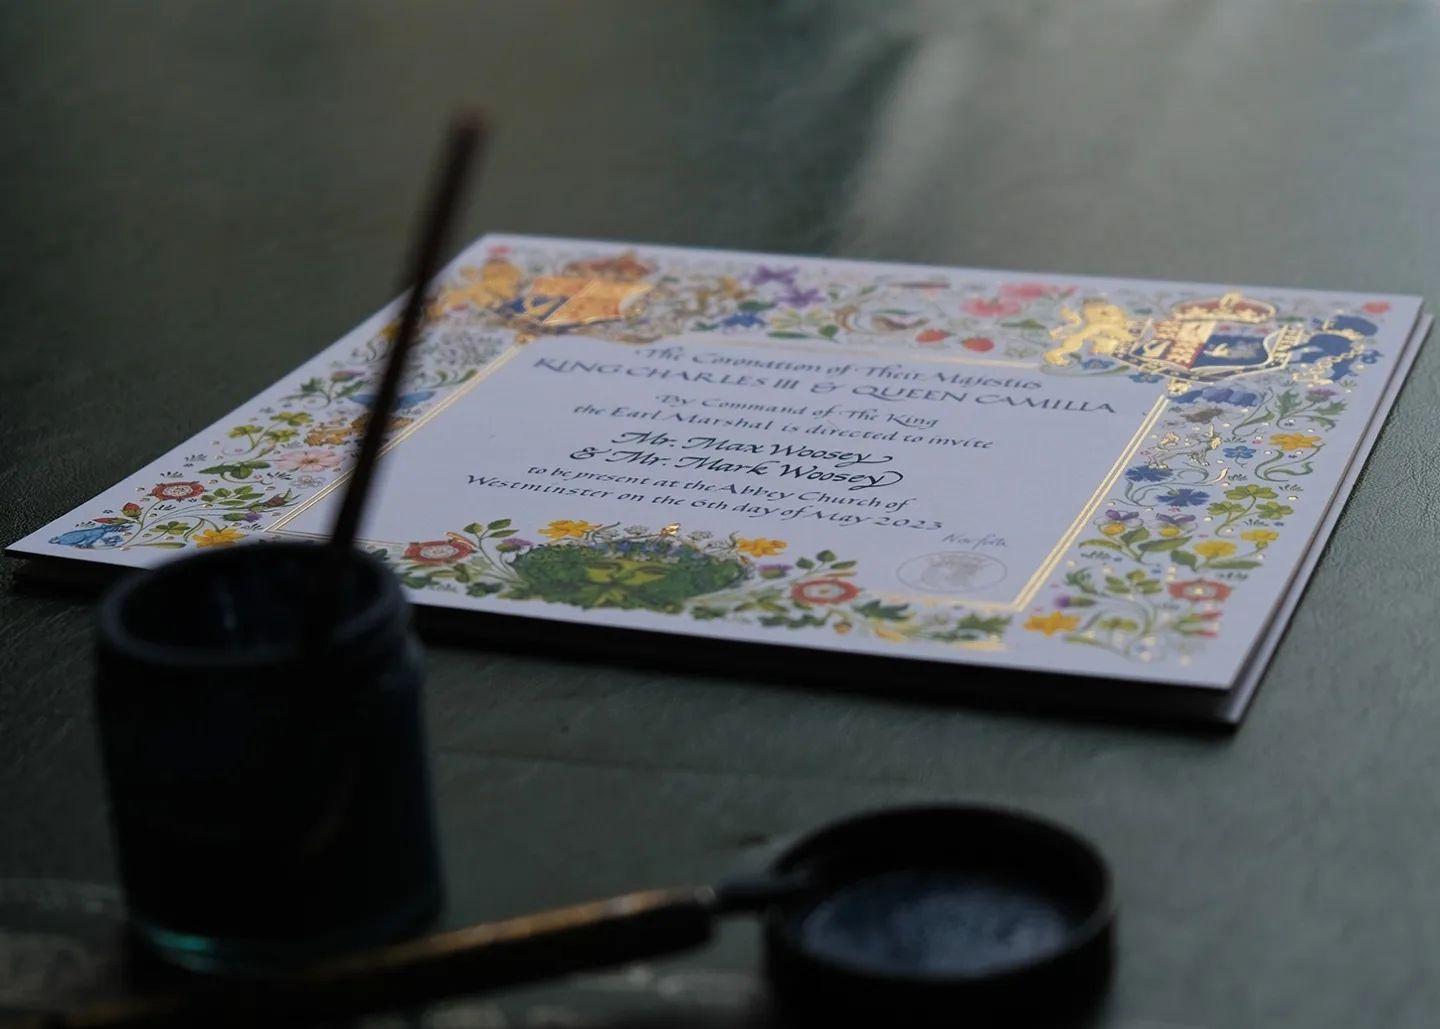 The Coronation of Their Majesties
KING CHARLES III & QUEEN CAMILLA
By Command of The King
the Earl Marshal is directed to invite
Mr. Max Woosey
& Mr. Mark Woosey
to be present at the Abbey Church of
Westminster on the 6th day of May 2023
Norfolk